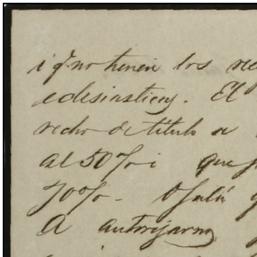 i q.e no tienen los re
eclesiasticas. El
recho de titulo a
al 50% i que p
70%. Ojalá q
A autorizarm